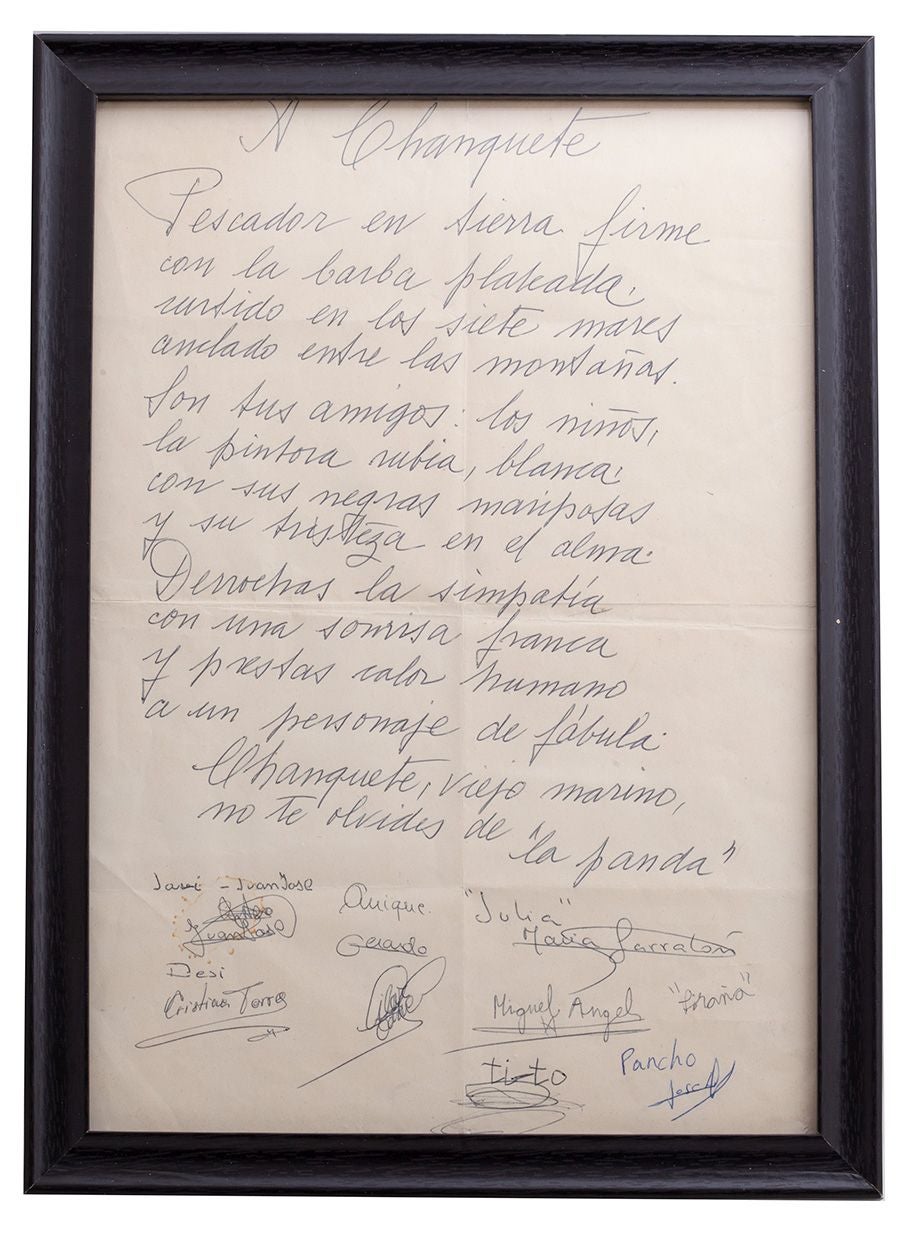 A Chanquete
Pescador en tierra firme
con la barba plateada,
curtido en los siete mares
anclado entre las montañas.
Son tus amigos: los niños,
la pintora rubia, blanca,
con sus negras mariposas
y su tristeza en el alma.
Derrochas la simpatía
con una sonrisa franca
y prestas calor humano
a un personaje de fábula.
Chanquete, viejo marino,
no te olvides de
"la panda"
Javi - Juan José
Juan José
Desi
Cristina Torres
Quique.
Gerardo
"Julia"
María Garralón
Miguel Angel "Piraña"
tito
Pancho
José